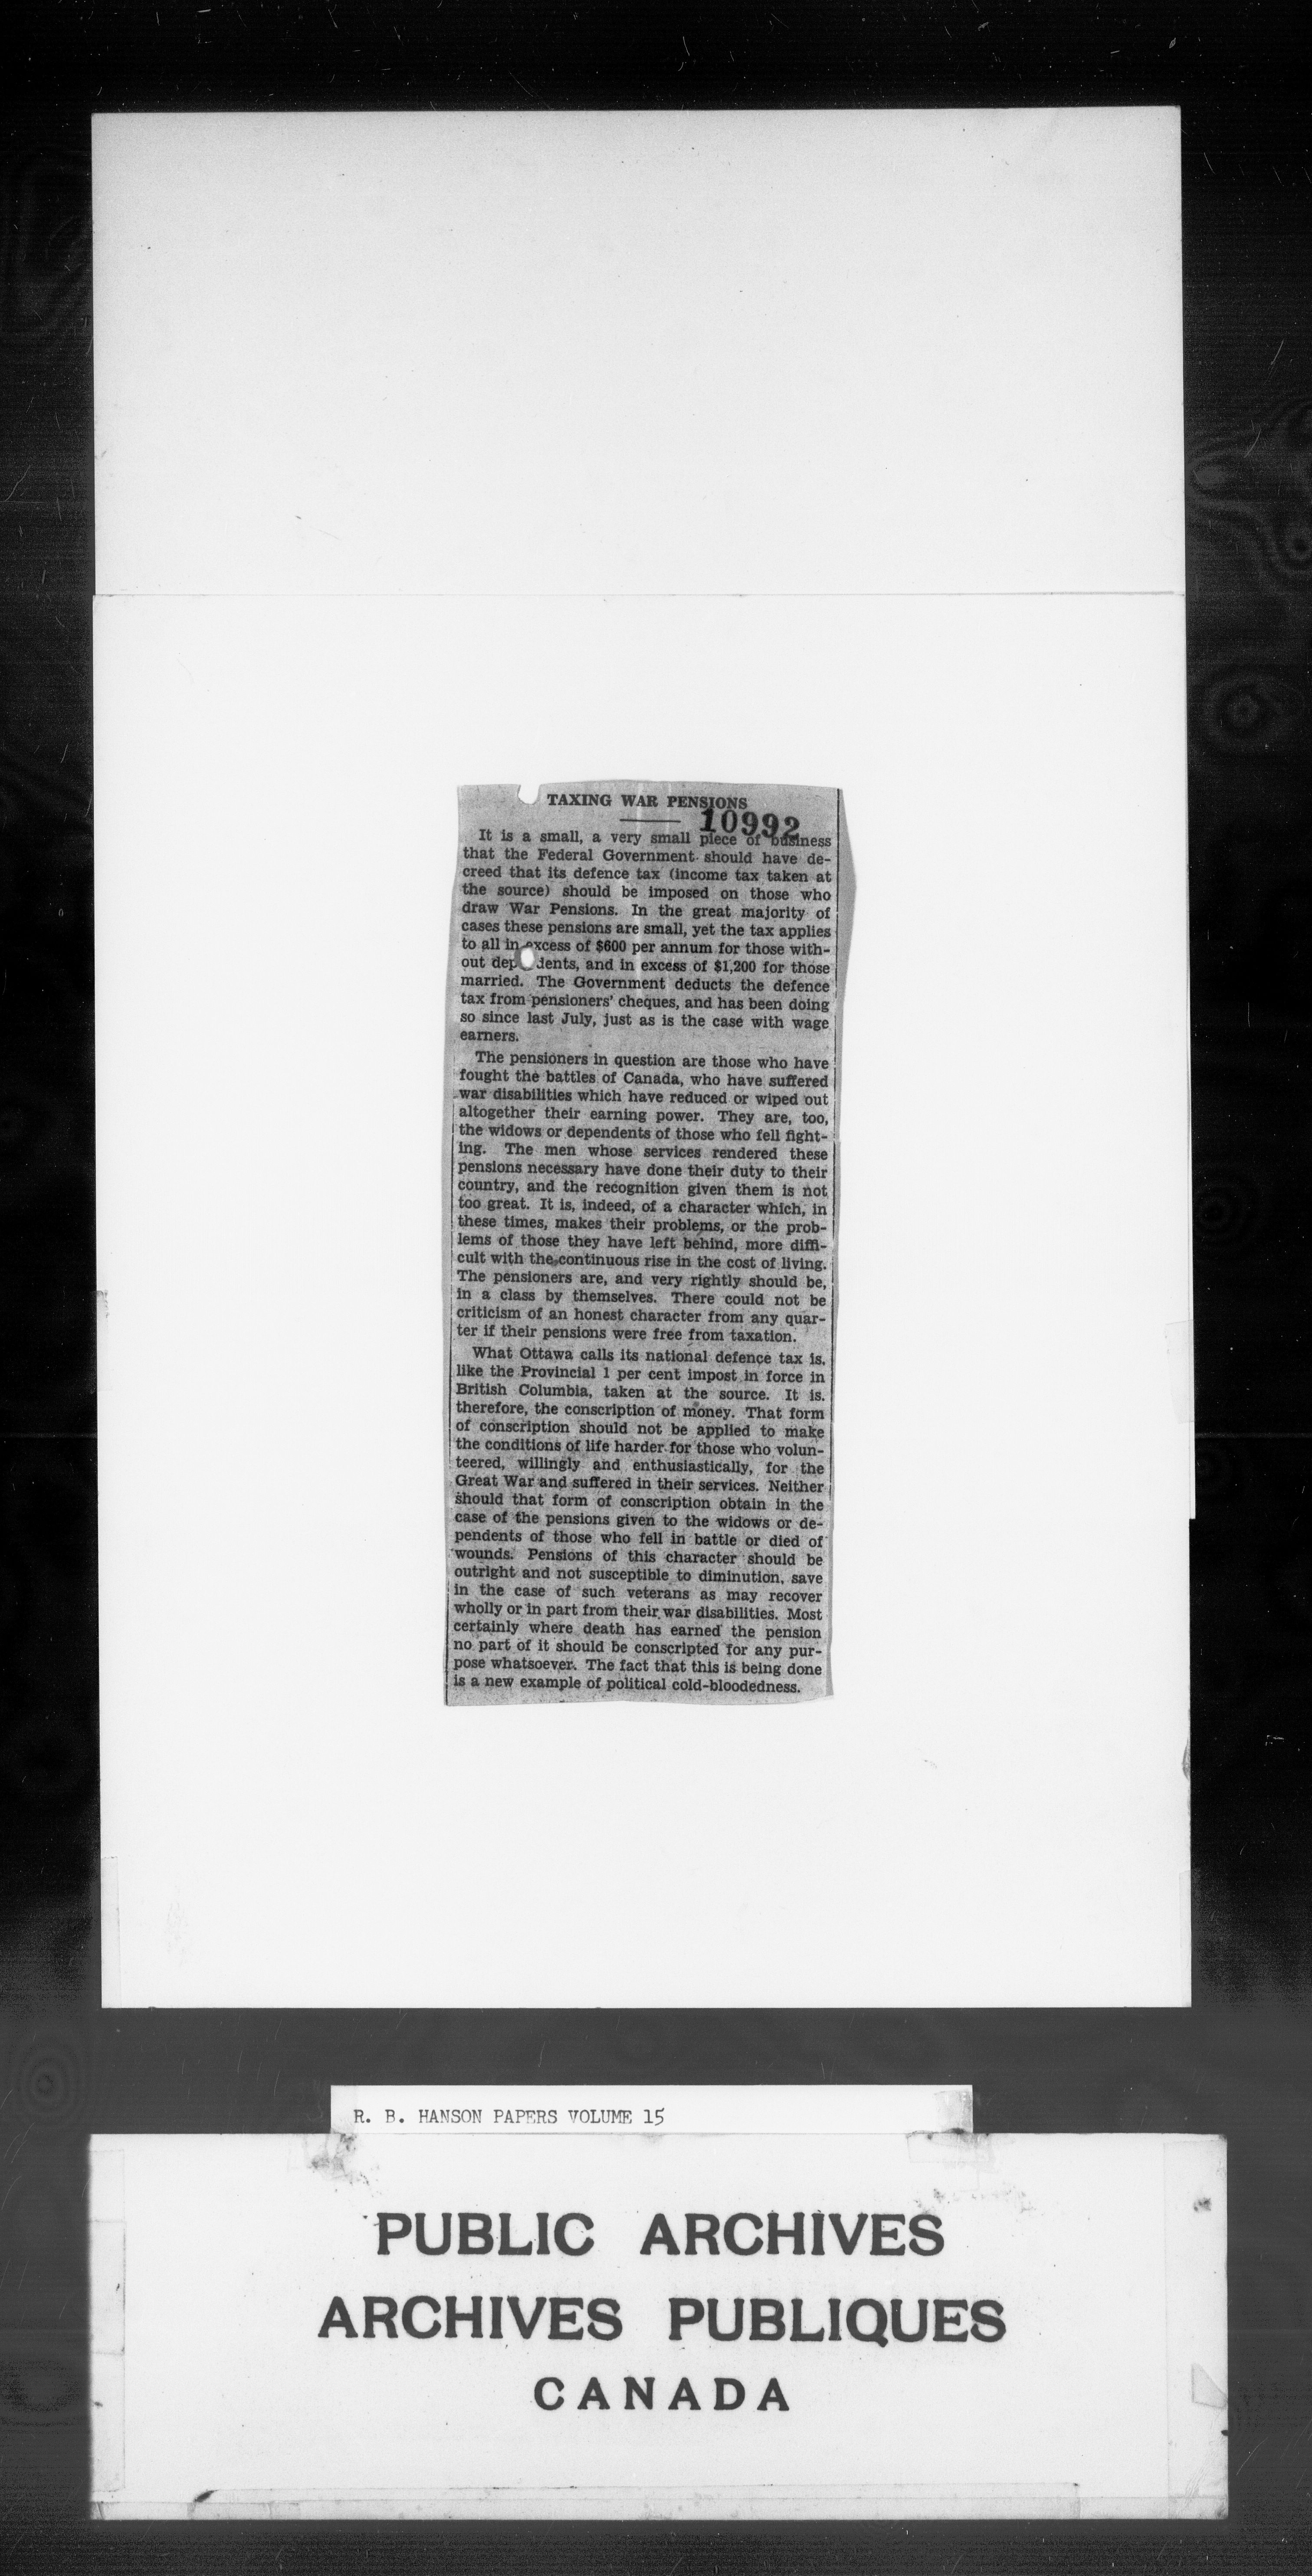 TAXING WAR PENSIONS
10992
It is a small, a very small piece of business
that the Federal Government should have de-
creed that its defence tax (income tax taken at
the source) should be imposed on those who
draw War Pensions. In the great majority of
cases these pensions are small, yet the tax applies
to all in excess of $600 per annum for those with-
out dep dents, and in excess of $1,200 for those
married. The Government deducts the defence
tax from pensioners' cheques, and has been doing
so since last July, just as is the case with wage
earners.
The pensioners in question are those who have
fought the battles of Canada, who have suffered
war disabilities which have reduced or wiped out
altogether their earning power. They are, too,
the widows or dependents of those who fell fight-
ing. The men whose services rendered these
pensions necessary have done their duty to their
country, and the recognition given them is not
too great. It is, indeed, of a character which, in
these times, makes their problems, or the prob-
lems of those they have left behind, more diffi-
cult with the continuous rise in the cost of living.
The pensioners are, and very rightly should be,
in a class by themselves. There could not be
criticism of an honest character from any quar-
ter if their pensions were free from taxation.
What Ottawa calls its national defence tax is,
like the Provincial 1 per cent impost in force in
British Columbia, taken at the source. It is.
therefore, the conscription of money. That form
of conscription should not be applied to make
the conditions of life harder for those who volun-
teered, willingly and enthusiastically, for the
Great War and suffered in their services. Neither
should that form of conscription obtain in the
case of the pensions given to the widows or de-
pendents of those who fell in battle or died of
wounds. Pensions of this character should be
outright and not susceptible to diminution, save
in the case of such veterans as may recover
wholly or in part from their war disabilities. Most
certainly where death has earned the pension
no part of it should be conscripted for any pur-
pose whatsoever. The fact that this is being done
is a new example of political cold-bloodedness.
R. B. HANSON PAPERS VOLUME 15
PUBLIC ARCHIVES
ARCHIVES PUBLIQUES
CANADA